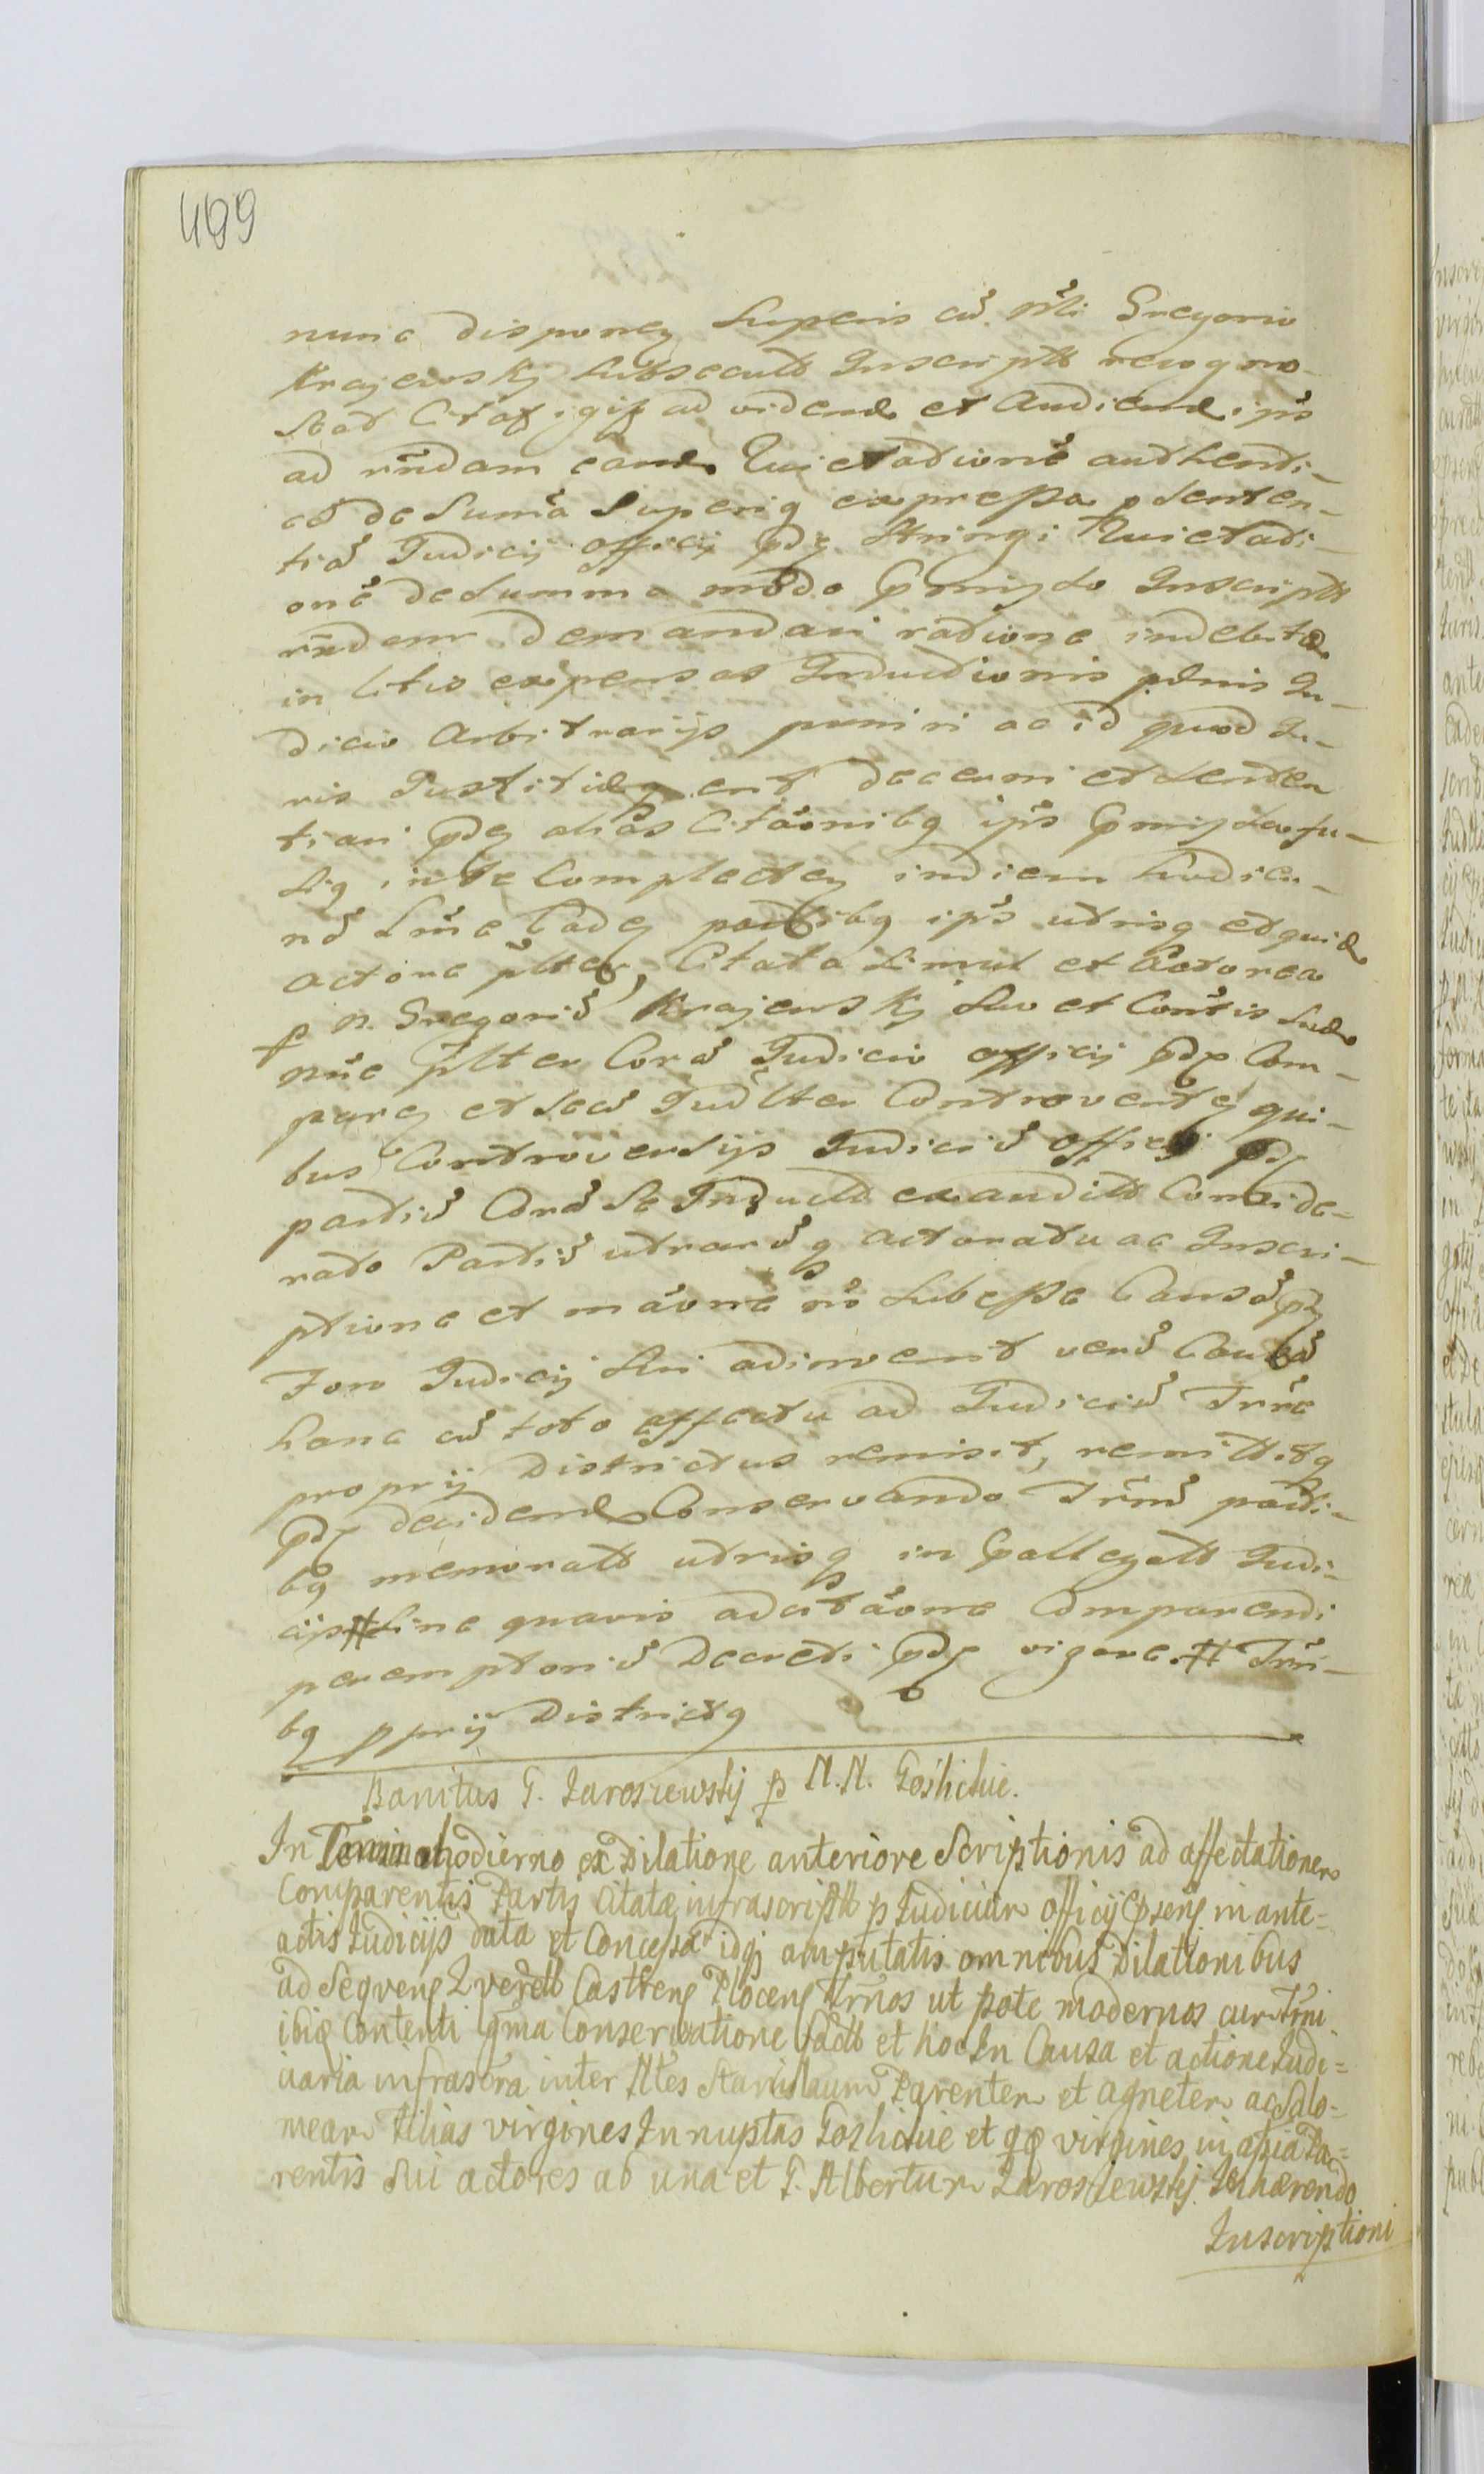 499
nunc disponen Superis cū Nbli Gregorio
Krajewskij subsecutt Inscriptt recogno-
ad vidend et Audiend ips
ad rñdam eand Quietationē authenti-
cā de Sumā Superiq expressa p Senten-
tiā Judicij officij pdz Stringi Quietati-
onē de summa modo pmisso Inscriptt
rñdem demandari ratione indebitæ
in litis expensas Inductionis pœnis Ju-
dicio Arbitrarijs puniri ac id quod Ju-
ris Justitiæq erit decerni et senten
tiari pdz alias Citãonibq ips pmisso fu-
siq inte Complecten indicem Judicu-
nd Sine Eadz partibq ips utrisq et quid
actore plter, Citata simul et Actorea
p N. Gregoriū Krajewskij suo et Contis suæ
nñe plter Corā Judicio officij pdz Com-
paren et secū Judlter Controverten qui-
bus Controversijs Judiciū officij pdz
partiū Corā Se Inductt exauditt Conside-
rato Partiū utrarūq actoratu ac Inscri-
ptione et mãone nō Subesse Causā pdz
Foro Judicij Sui adinvenit verū Causā
hanc cū toto effectu ad Judiciū Trrē
proprij Districtus remisit, remittitq
pdz decidend Conservando Trm̃ parti-
bq memoratt utrisq in pallegatt Judi-
cijs # sine quavis adcitãone Comparendi
peremptoriū Decreti pdz vigore. # Trri-
bq pprij Districtq
Banitus G. Jaroszewskij p N.N. Goslickie.
In Termino hodierno ex Dilatione anteriore Scriptionis ad affectationem
Comparentis Partis Citatæ infrascriptt p Judicium officij pseng in ante=
actis Judicijs data et Concessa idqj amputatis omnibus Dilationibus
ad Seqveng Qverell Castreng Ploceng Trm̃nos ut pote modernos cum Trmi
ibiq Contenti qma Conservatione factt et hoc In Causa et actione Judi=
ciaria infrascra inter Nbles Stanislaum Parentem et Agnetem ac Salo=
meam Filias virgines Innuptas Goslickie et qq virgines, in assia Pa=
rentis sui actores ab una et G. Albertum Jaroszewskij Inhærendo
Inscriptioni